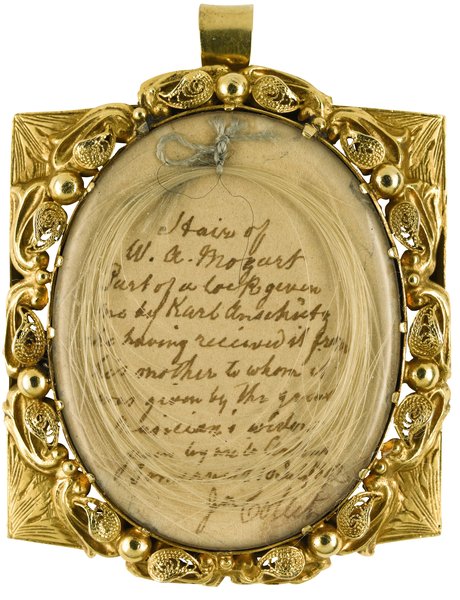 Hair of
W. A. Mozart
Part of a lock given
me by Karl Anschütz
he having received it from
his mother to whom it
was given by the great
musician's widow